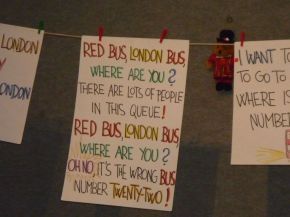 LONDON
Y
LONDON
RED BUS, LONDON BUS,
WHERE ARE YOU?
THERE ARE LOTS OF PEOPLE
IN THIS QUEUE!
RED BUS, LONDON BUS,
WHERE ARE YOU?
OH NO, IT'S THE WRONG BUS
NUMBER TWENTY-TWO!
I WANT TO
TO GO TO
WHERE IS
NUMBER